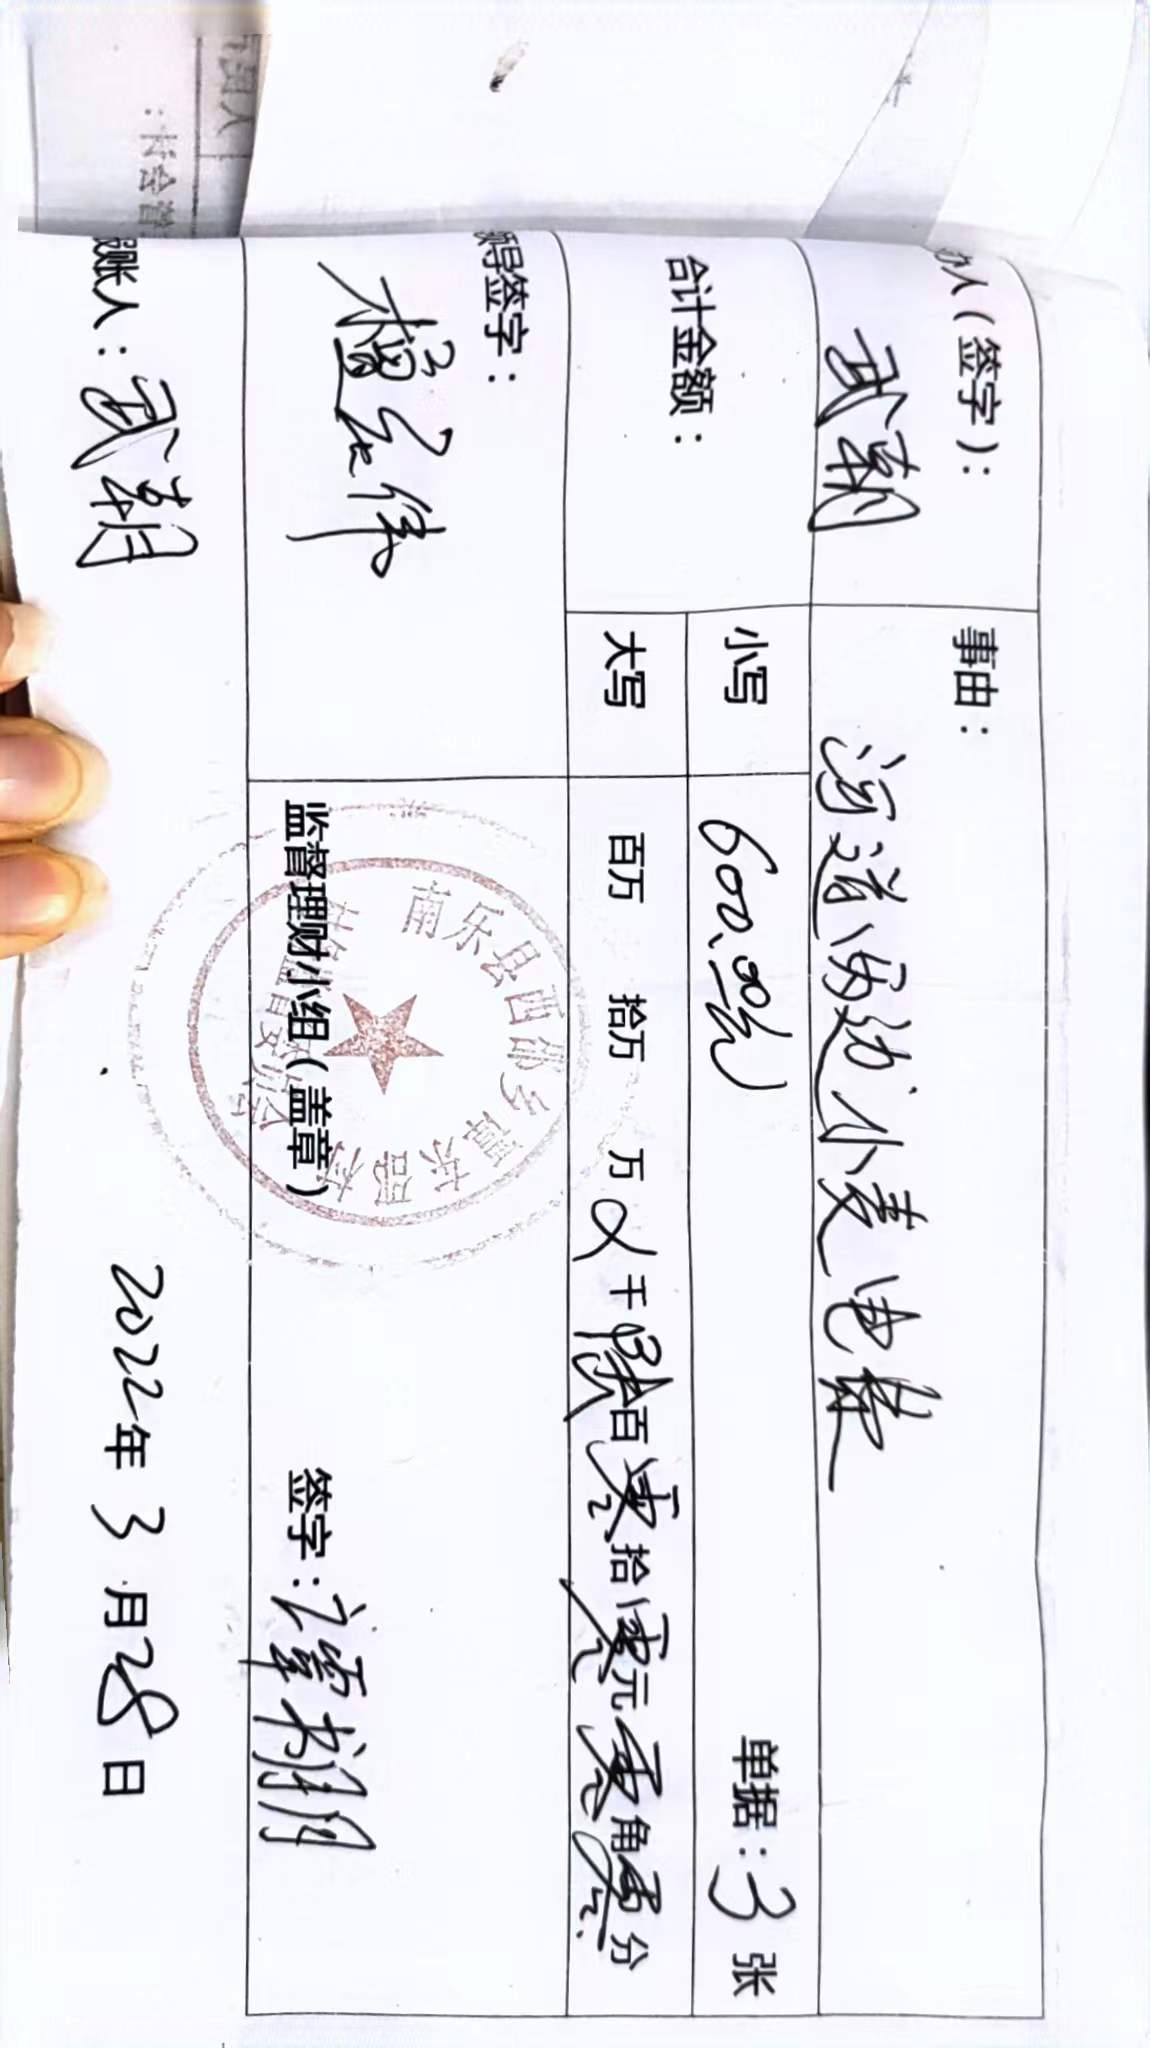 办人(签字):
武朝
事由:
河道两边小麦电费
合计金额:
小写
600.00元
单据:3张
大写
百万 拾万 万 ¥ 千 陆 百 零 拾 零 元 零 角 零 分
领导签字:
监督理财小组(盖章)
南乐县西邵乡
签字:
报账人:武朝
2022年3月28日